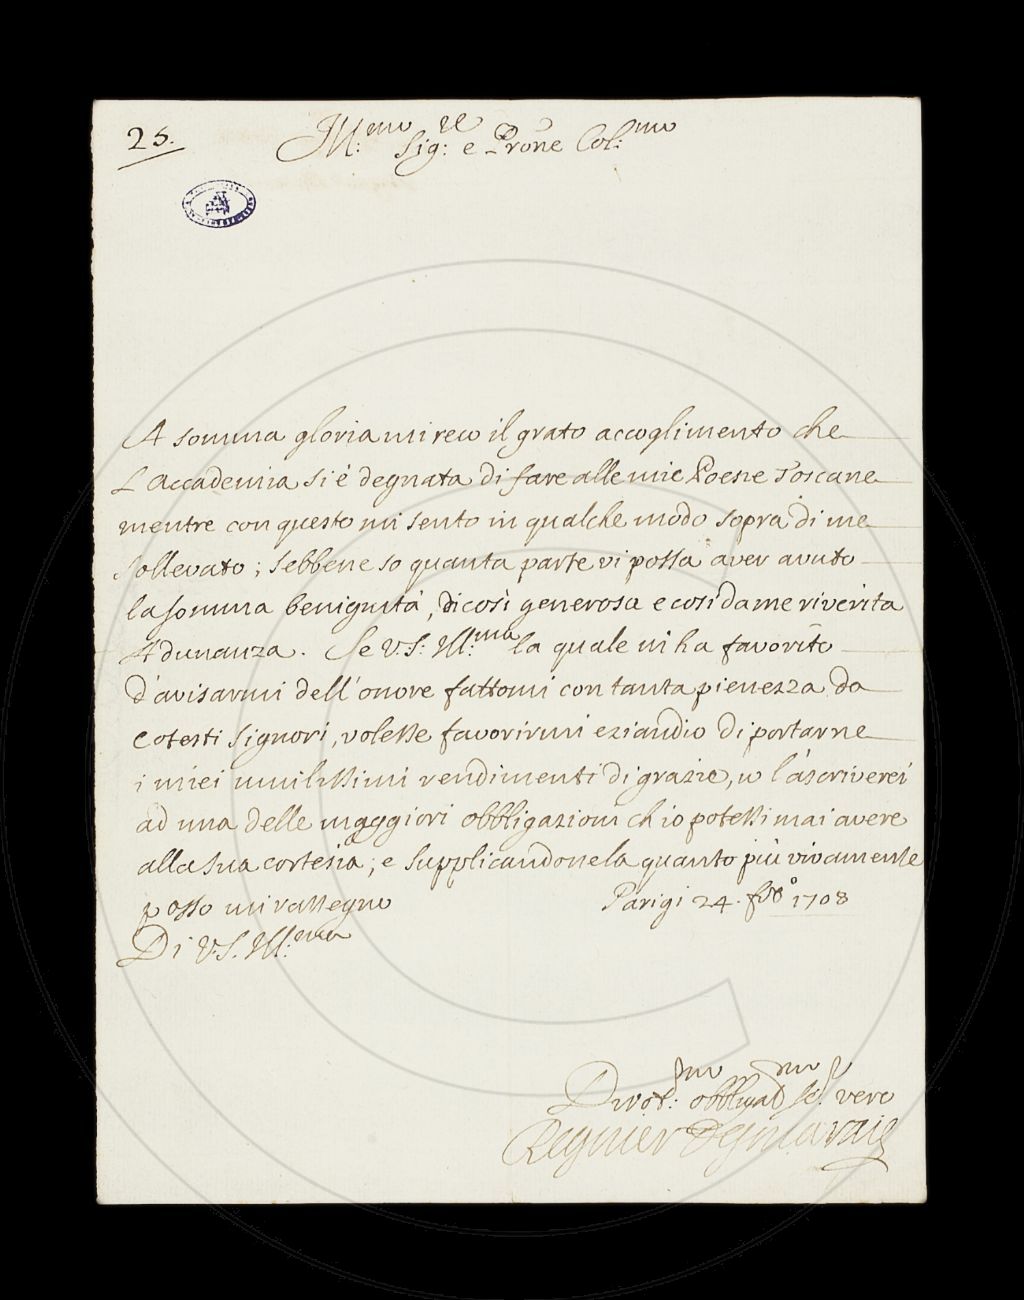 25.
Ill.mo Sig.re e Prône Col.mo
A somma gloria mi reco il grato accoglimento che
L'Accademia si è degnata di fare alle mie Poesie Toscane
mentre con questo mi sento in qualche modo sopra di me
sollevato; sebbene so quanta parte vi possa aver avuto
la somma benignità, di così generosa e così da me riverita
Adunanza. Se V.S. Ill.ma la quale mi ha favorito
d'avisarmi dell'onore fattomi con tanta pienezza da
cotesti Signori, volesse favorirmi eziandio di portarne
i miei umilissimi rendimenti di grazie, io l'ascriverei
ad una delle maggiori obbligazioni ch'io potessi mai avere
alla sua cortesia; e supplicandonela quanto più vivamente
posso mi rassegno
Parigi 24. 1708
Di V.S. Ill.ma
Divot.mo obbligat.mo se.r vero
Regnier Desmarais